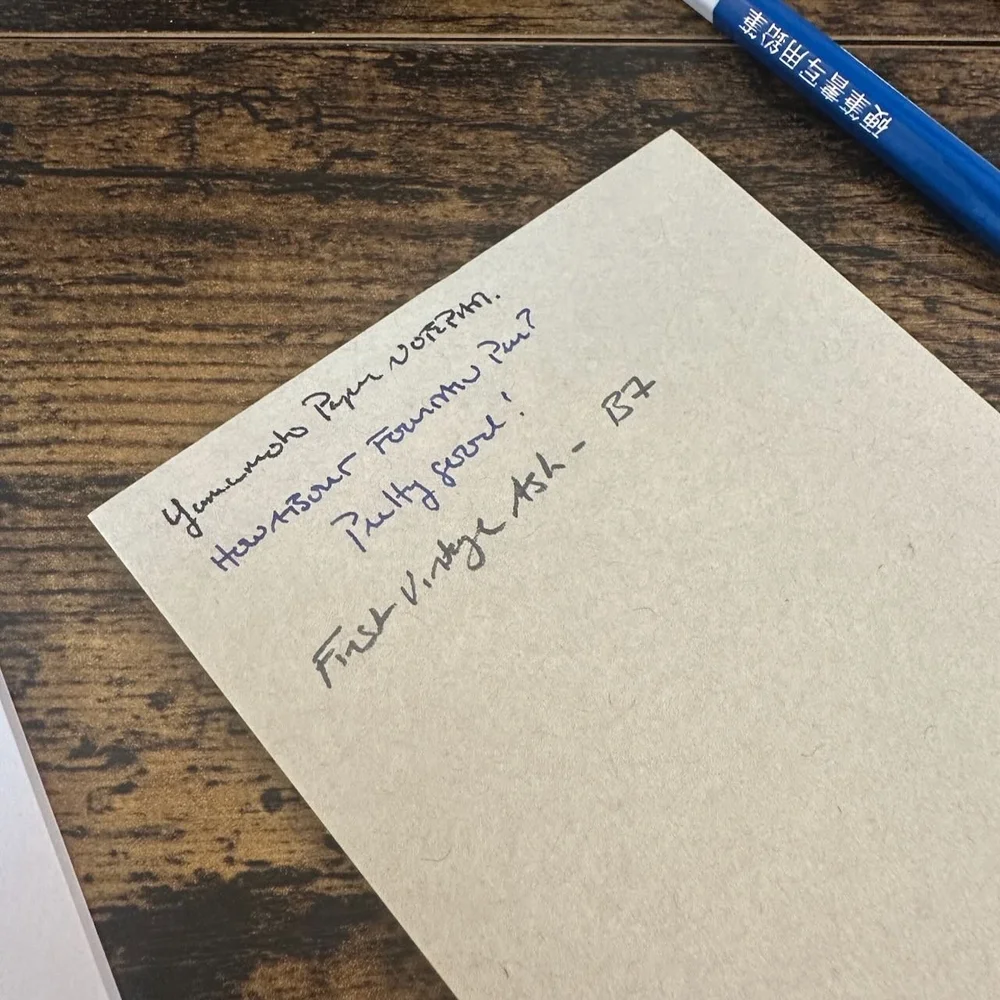 Yamamoto Paper NOTEPAD.
HOW ABOUT FOUNTAIN Pen?
Pretty good!
First Vintage Ash - B7
硬筆書写用鉛筆